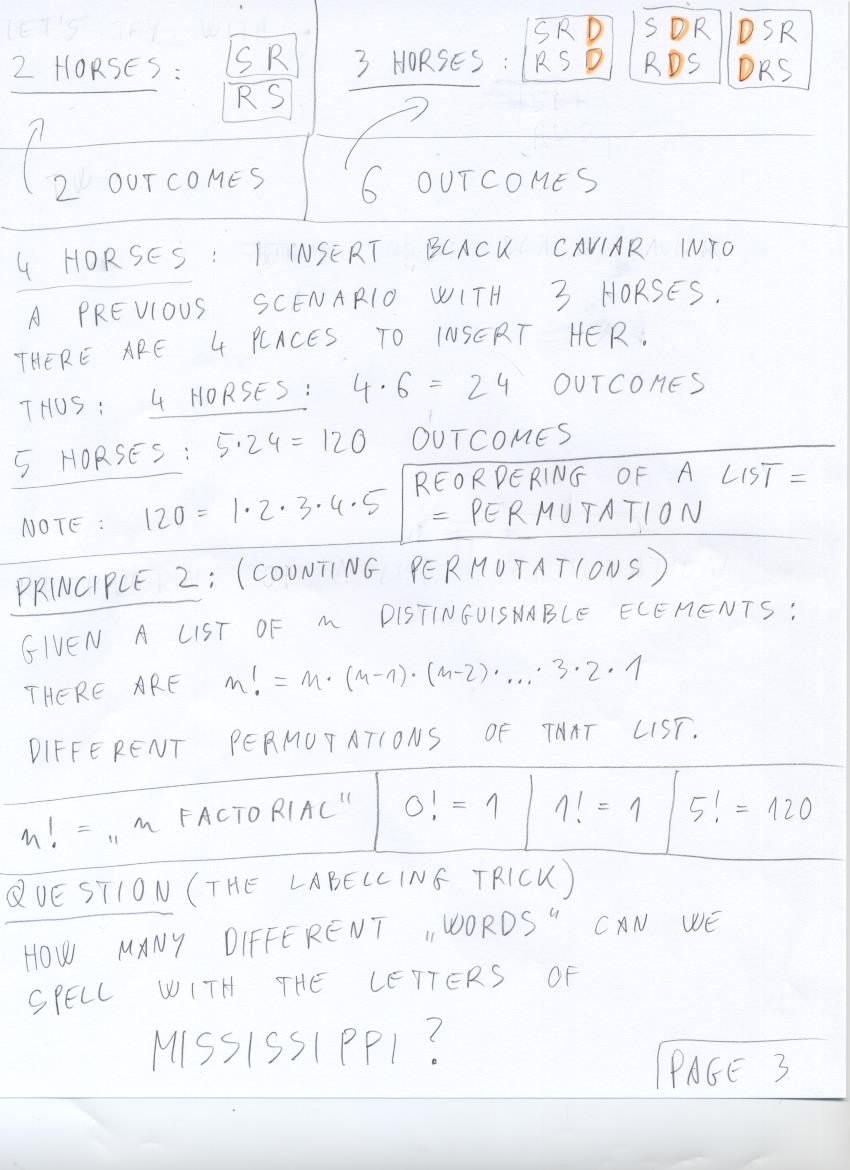 2 HORSES:
S R
R S
3 HORSES:
S R D
R S D
S D R
R D S
D S R
D R S
2 OUTCOMES
6 OUTCOMES
4 HORSES: I INSERT BLACK CAVIAR INTO
A PREVIOUS SCENARIO WITH 3 HORSES.
THERE ARE 4 PLACES TO INSERT HER.
THUS: 4 HORSES: 4·6 = 24 OUTCOMES
5 HORSES: 5·24 = 120 OUTCOMES
NOTE: 120 = 1·2·3·4·5
REORDERING OF A LIST =
= PERMUTATION
PRINCIPLE 2: (COUNTING PERMUTATIONS)
GIVEN A LIST OF n DISTINGUISHABLE ELEMENTS:
THERE ARE n! = n·(n-1)·(n-2)·...·3·2·1
DIFFERENT PERMUTATIONS OF THAT LIST.
n! = „n FACTORIAL“
0! = 1
1! = 1
5! = 120
QUESTION (THE LABELLING TRICK)
HOW MANY DIFFERENT „WORDS“ CAN WE
SPELL WITH THE LETTERS OF
MISSISSIPPI?
PAGE 3